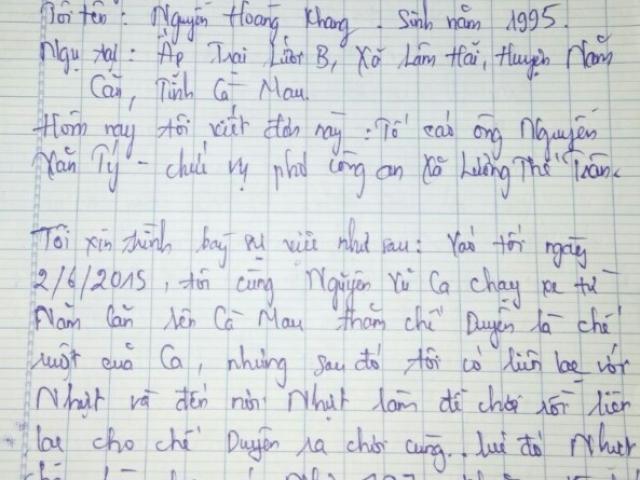 Tôi tên : Nguyễn Hoàng Khang . Sinh năm 1995.
Ngụ tại : Ấp Trại Lưới B, Xã Lâm Hải, Huyện Năm
Căn, Tỉnh Cà Mau.
Hôm nay tôi viết đơn này : Tố cáo ông Nguyễn
Văn Tý - chức vụ phó công an xã Lương Thế Trân.
Tôi xin trình bày sự việc như sau : Vào tối ngày
2/6/2015, tôi cùng Nguyễn Vũ Ca chạy xe từ
Năm Căn lên Cà Mau thăm chế Duyên là chế
ruột của Ca, nhưng sau đó tôi có liên lạc với
Nhựt và đến nơi Nhựt làm để chơi rồi liên
lạc cho chế Duyên ra chơi cùng. lúc đó Nhựt